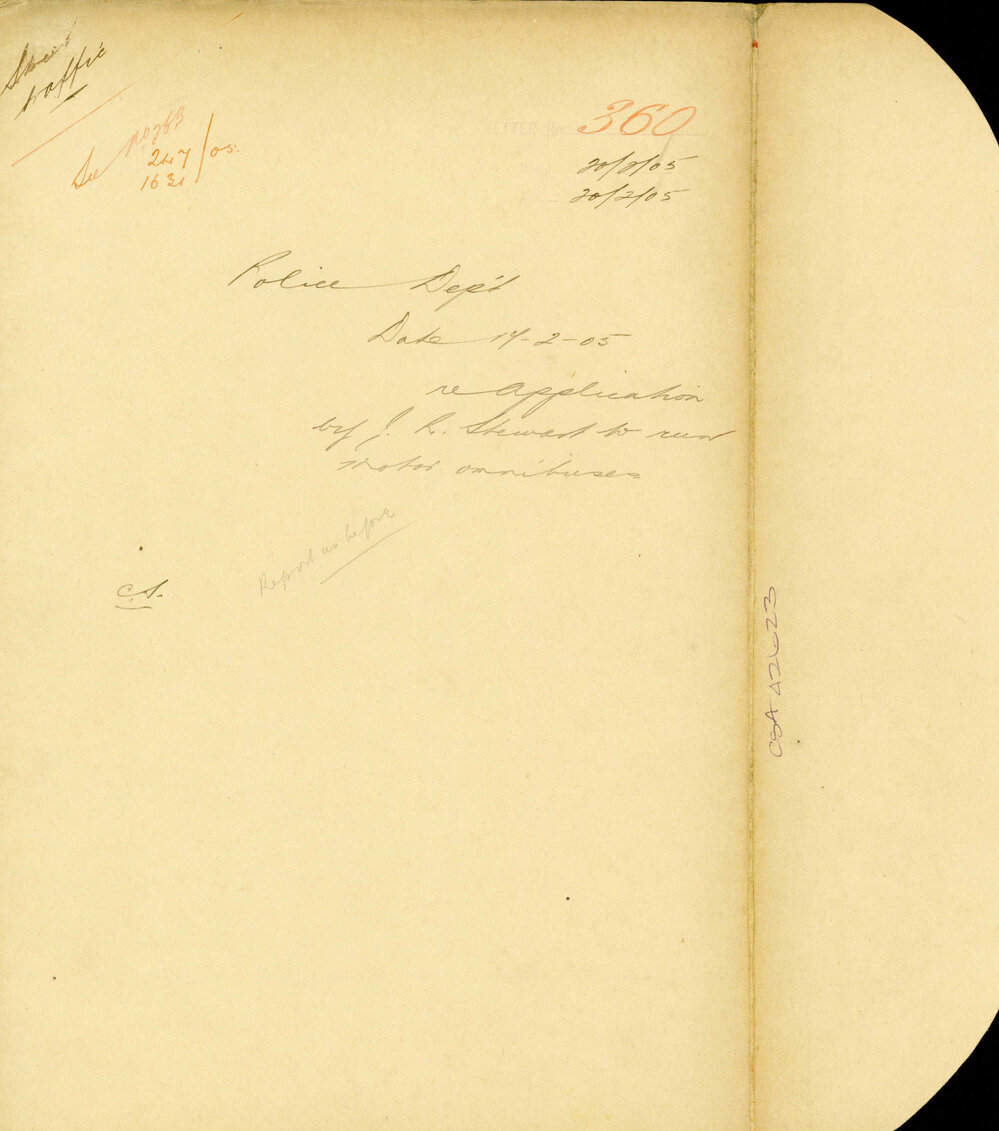 Street
traffic
See No 263
247 / 05.
1631
LETTER No. 360
20/2/05
20/2/05
Police Dep't
Date 17-2-05
re application
by J. R. Stewart to run
motor omnibuses
Report as before
C.S.
CSA A2623